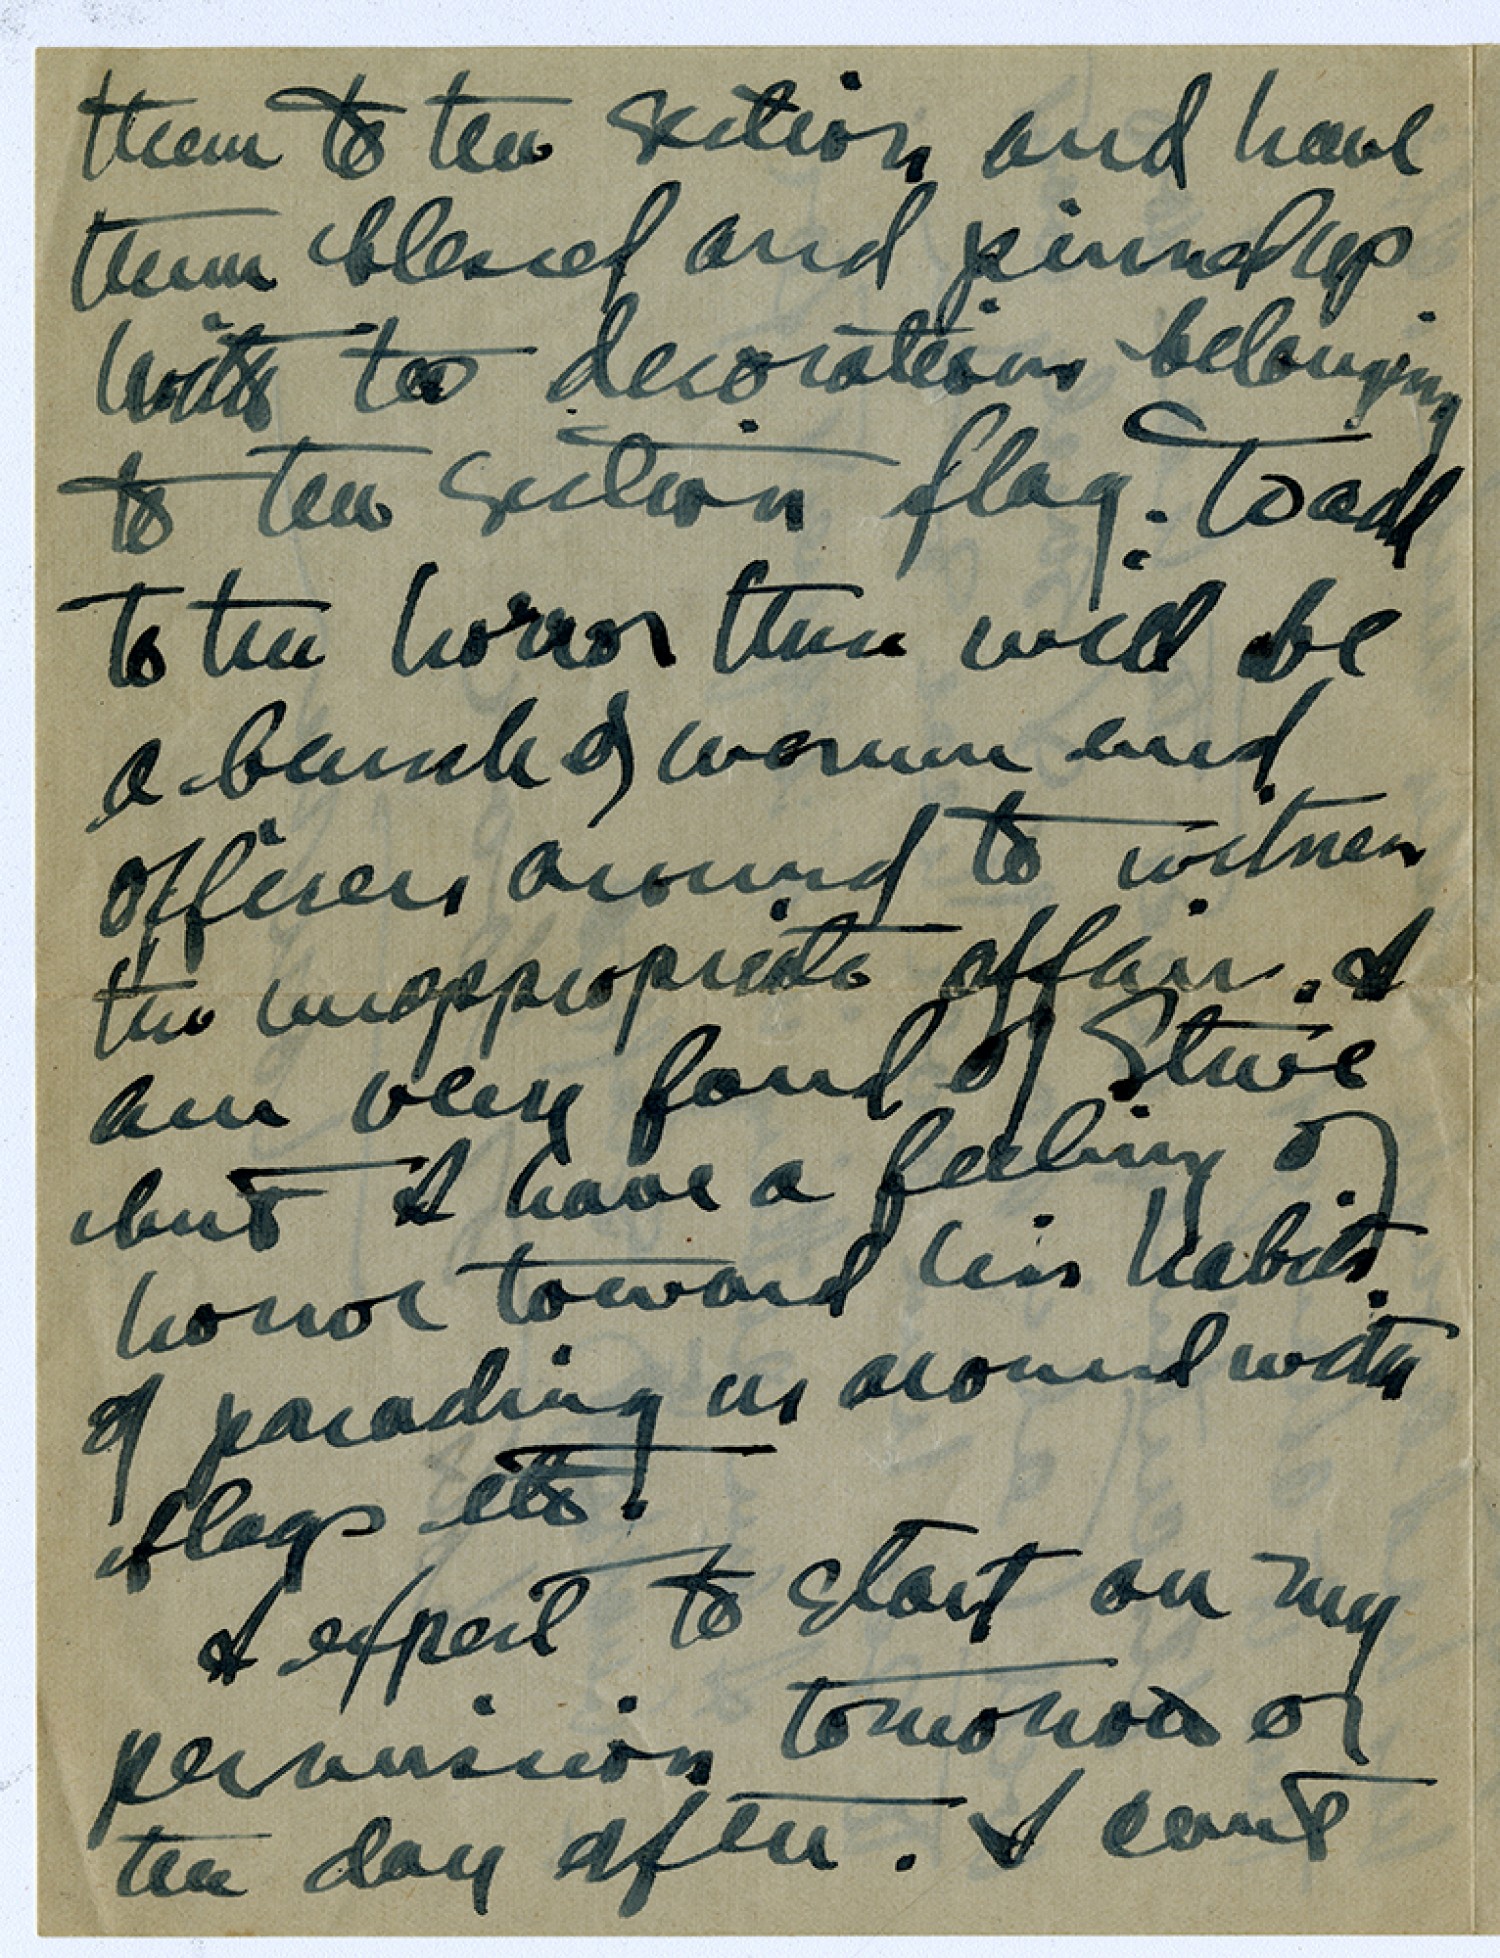 them to the section and have
them blessed and pinned up
with the decorations belonging
to the section flag. To add
to the horror there will be
a bunch of women and
officers around to witness
the inappropriate affair. I
am very fond of Steve
but I have a feeling of
horror toward his habits
of parading us around with
flags etc.
I expect to start on my
permission tomorrow or
the day after. I cant